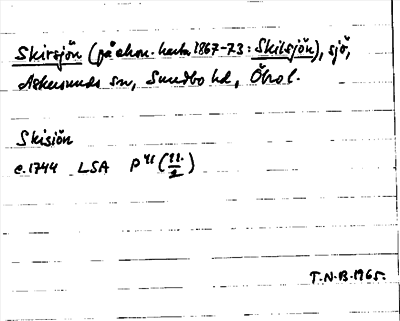 Skirsjön (på ekon. karta 1867-73: Skilsjön), sjö,
Askersunds sn, Sundbo hd, Ötgl.
Skisiön
c. 1744 LSA P 41 (11:/2)
T.N.B. 1965.